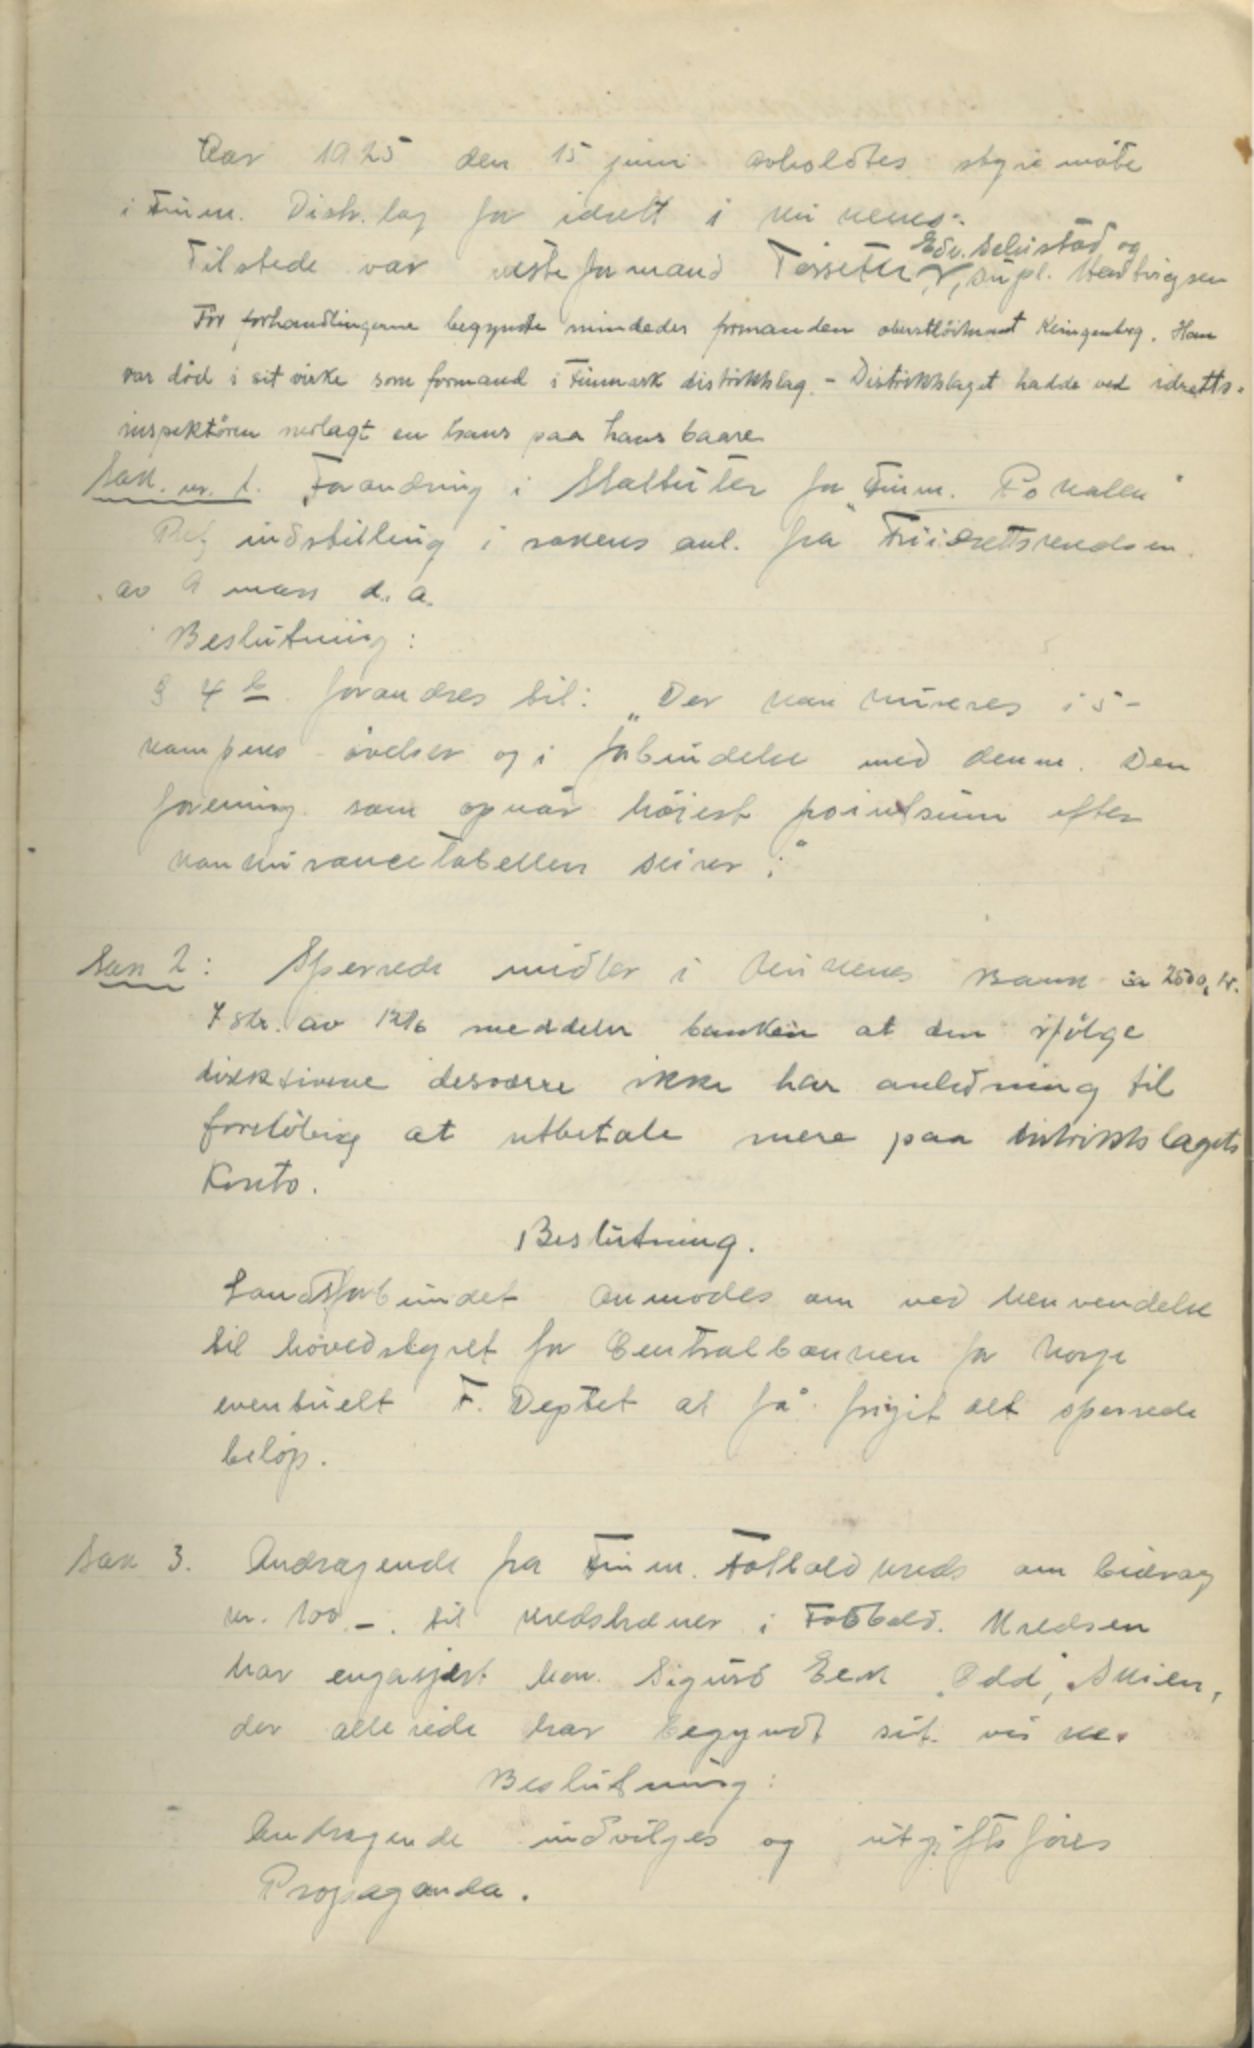 Aar 1925 den 15 juni avholdtes styremöte
i Finm. Distr. lag for idrett i Kirkenes.
Edv. Selustad og
Tilstede var vesteformand Fossetu, supl. Hedtvigsen
Før forhandlingerne begyndte mindedes formanden oberstlöitnant Klingenberg. Han
var död i sit virke som formand i Finmark distriktslag. - Distriktslaget hadde ved idretts-
inspektören nedlagt en krans paa hans baare
Sak. nr. 1. Forandring i Stattuter for "Finm. Pokalen"
Ref indstilling i sakens anl. frå Friidrettskredsen
av 9 mars d. a.
Beslutning:
§ 4 b. forandres til: "Der kan kunkureres i 5-
kampens övelser og i forbindelse med denne. Den
forening som opnår höiest pointsum efter
konkurancetabellen seirer."
Sak 2: Sperrede midler i Kirkenes Bank ca 2500, kr.
I skr. av 12/6 meddeler banken at den ifölge
direktivene desværre ikke har anledning til
forelöbig at utbetale mere paa distriktslagets
Konto.
Beslutning.
Landsforbundet anmodes om ved henvendelse
til hovedstyret for Centralbanken for Norge
eventuelt F. Deptet at få frigit alt sperrede
belöp.
Sak 3. Andragende fra Finm. Fotballkreds om bidrag
kr. 100.-. til kredstræner i Fotball. Kredsen
har engasjert hrr. Sigurd Eek "Odd", Skien,
der allerede har begyndt sit virke.
Beslutning:
Andragende indvilges og utgiftsföres
Propaganda.